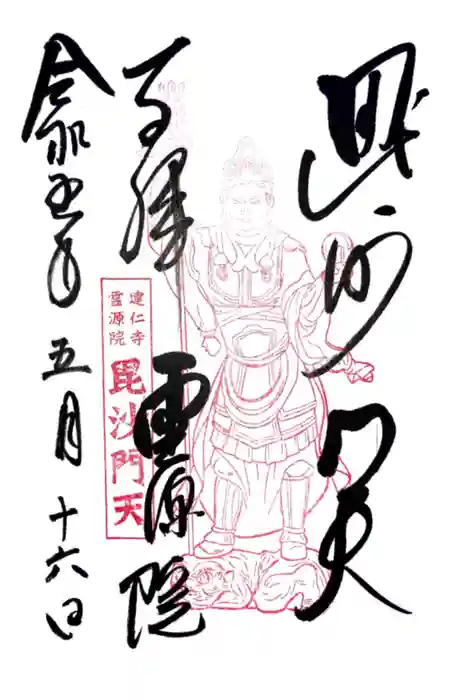 毘沙門天
奉拝
霊源院
建仁寺
霊源院
毘沙門天
令和五年五月十六日